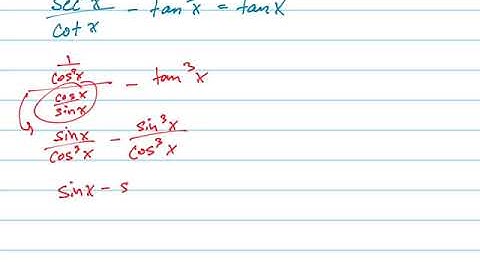 sec²x/cot x - tan³x = tan x
(1/cos²x)/(cos x/sin x) - tan³x
sin x/cos³x - sin³x/cos³x
sin x - s